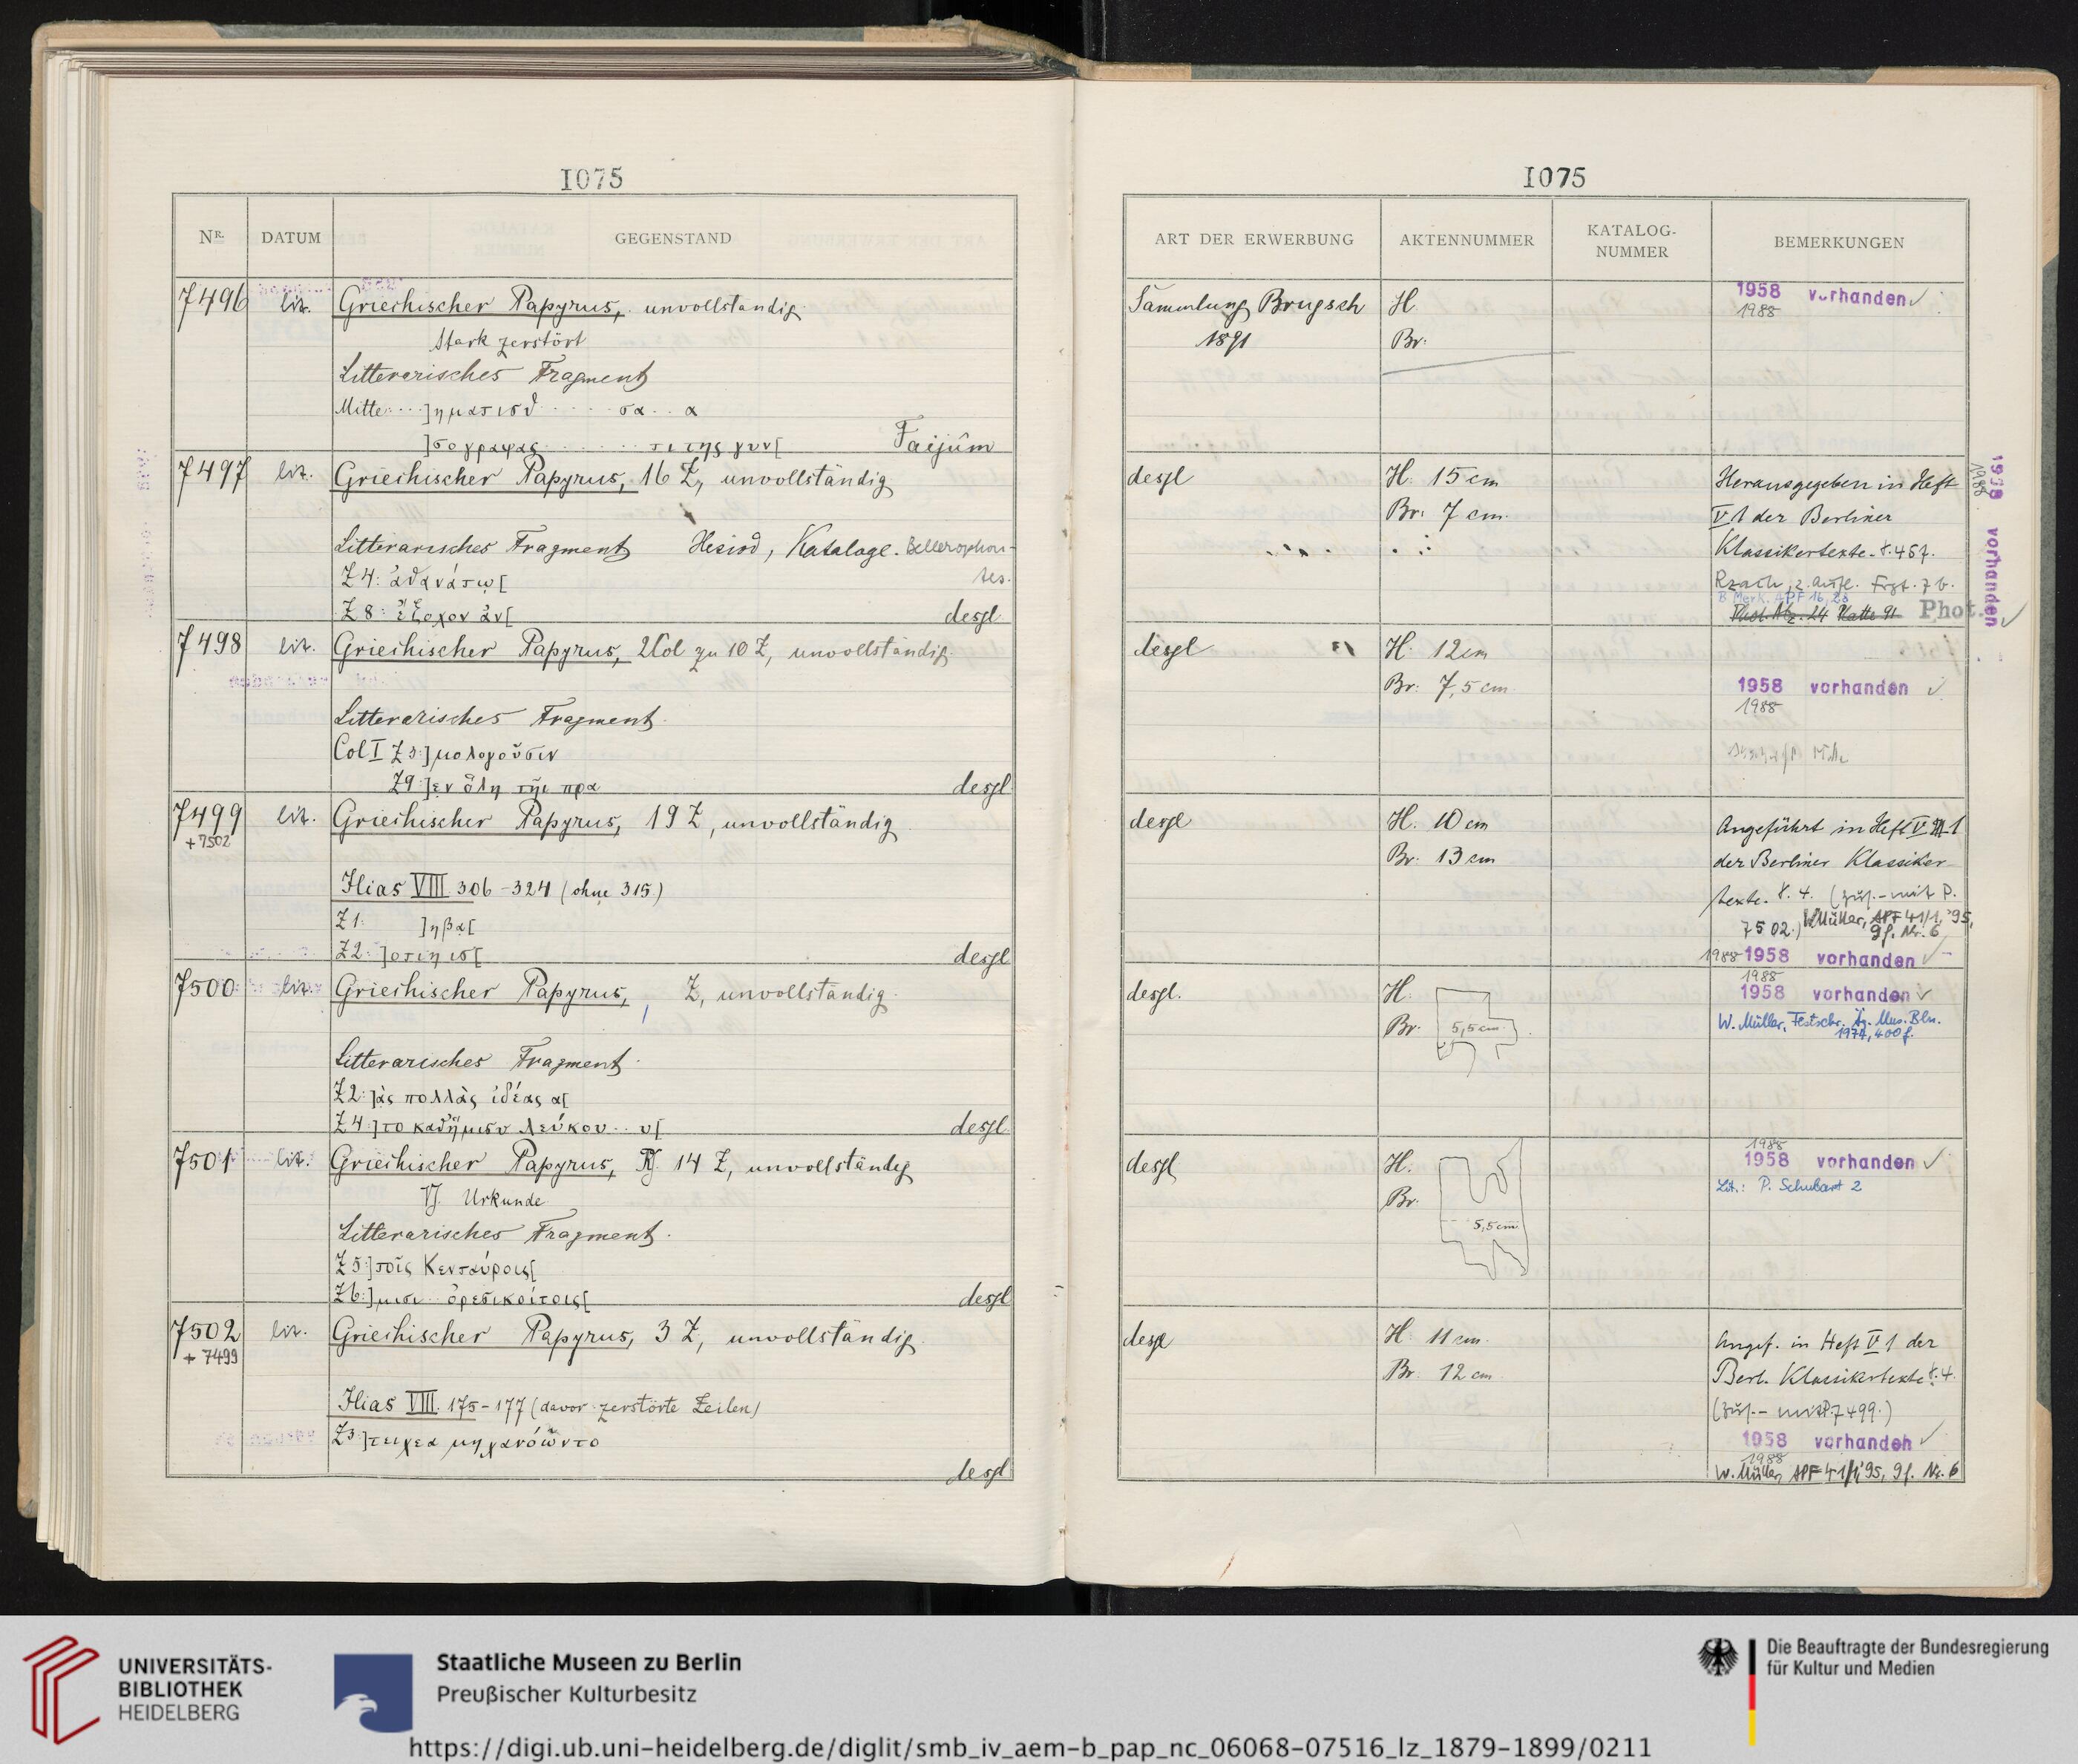 1075
Nr. DATUM GEGENSTAND
7496 lit. Griechischer Papyrus, unvollständig
stark zerstört
Litterarisches Fragment
Mitte: ]ηματισθ σα . . α
]σογραφας τι της γυν[ Faijûm
7497 lit. Griechischer Papyrus, 16 Z, unvollständig
Litterarisches Fragment Hesiod, Kataloge. Bellerophon-
tes.
Z 4: ἀθανάτῳ[
Z 8: ἔξοχον ἀν[ desgl
7498 lit. Griechischer Papyrus, 2 Col zu 10 Z, unvollständig
Litterarisches Fragment
Col I Z 3: ]μολογοῦσιν
Z 9: ]εν ὅλη τῆι πρα desgl
7499 lit. Griechischer Papyrus, 19 Z, unvollständig
+7502
Ilias VIII 306-324 (ohne 315)
Z 1: ]ηβα[
Z 2: ]οτιη ισ[ desgl
7500 lit. Griechischer Papyrus, Z, unvollständig
Litterarisches Fragment
Z 2: ]ὰς πολλὰς ἰδέας α[
Z 4: ]το λεύκου . . υ[ desgl
7501 lit. Griechischer Papyrus, 14 Z, unvollständig
Urkunde
Litterarisches Fragment
Z 5: ]τοῖς Κενταύροις[
Z 6: ] ὀρεσικοίτοις[ desgl
7502 lit. Griechischer Papyrus, 3 Z, unvollständig
+ 7499
Ilias VIII. 175-177 (davor zerstörte Zeilen)
Z 3: ]τειχεα μηχανόωντο
desgl
1075
ART DER ERWERBUNG AKTENNUMMER KATALOG-
NUMMER BEMERKUNGEN
Sammlung Brugsch H 1958 vorhanden ✓
1891 Br: 1988
desgl H. 15 cm Herausgegeben in Heft
Br: 7 cm. V 1 der Berliner
Klassikertexte. S. 45 f.
Rzach, 2. Aufl. Frgt. 7 b.
Phot.
1988
1958 vorhanden ✓
desgl H. 12 cm
Br: 7,5 cm 1958 vorhanden ✓
1988
desgl H. 10 cm Angeführt in Heft V 1
Br: 13 cm der Berliner Klassiker
texte. S. 4. (zus.- mit P.
7502.) W. Müller, APF 41/1, '95,
9 f. Nr. 6
1988 1958 vorhanden ✓
desgl. H. 1988
1958 vorhanden ✓
Br: 5,5 cm W. Müller, Festschr. Äg. Mus. Bln.
1974, 400 f.
desgl H. 1988
1958 vorhanden ✓
Br. Lit.: P. Schubart 2
5,5 cm
desgl H 11 cm. Angef. in Heft V 1 der
Br: 12 cm Berl. Klassikertexte S. 4.
(zus.- mit P. 7499.)
1958 vorhanden ✓
1988
W. Müller, APF 41/1, '95, 9 f. Nr. 6
UNIVERSITÄTS-
BIBLIOTHEK
HEIDELBERG
Staatliche Museen zu Berlin
Preußischer Kulturbesitz
Die Beauftragte der Bundesregierung
für Kultur und Medien
https://digi.ub.uni-heidelberg.de/diglit/smb_iv_aem-b_pap_nc_06068-07516_lz_1879-1899/0211